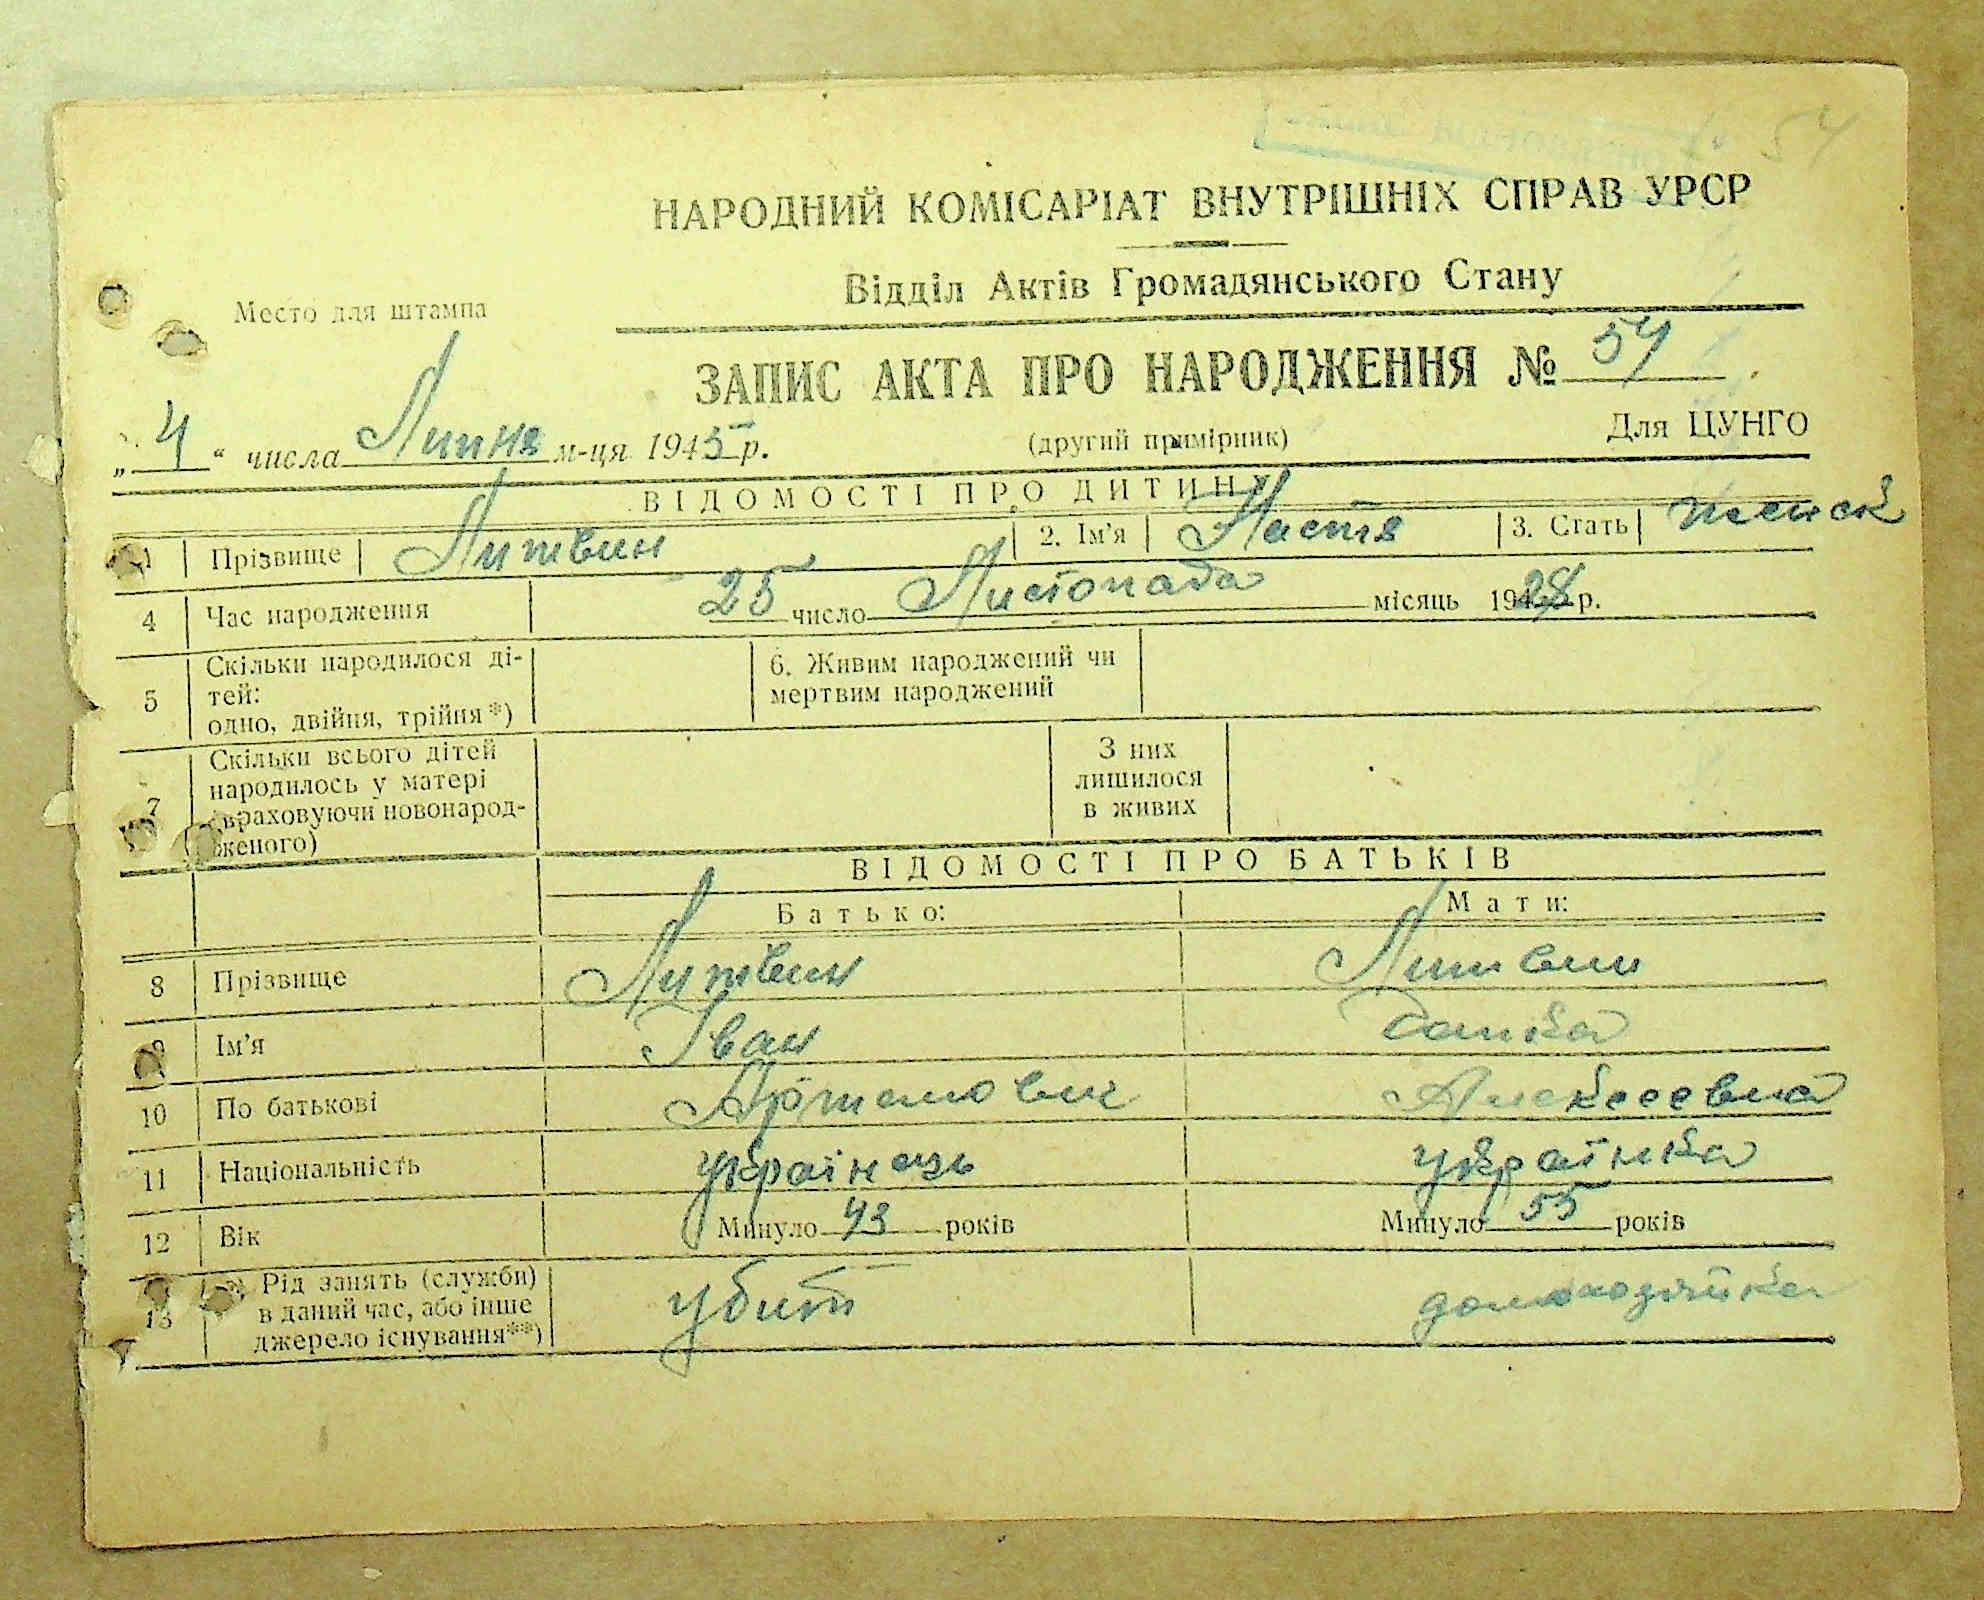 54
НАРОДНИЙ КОМІСАРІАТ ВНУТРІШНІХ СПРАВ УРСР
Відділ Актів Громадянського Стану
Место для штампа
ЗАПИС АКТА ПРО НАРОДЖЕННЯ № 54
„4“ числа Липня м-ця 1945 р. (другий примірник) Для ЦУНГО
ВІДОМОСТІ ПРО ДИТИНУ
1 Прізвище Литвин 2. Ім'я Настя 3. Стать женск
4 Час народження 25 число Листопада місяць 1928 р.
5 Скільки народилося ді-
тей:
одно, двійня, трійня*) 6. Живим народжений чи
мертвим народжений
7 Скільки всього дітей
народилось у матері
(враховуючи новонарод-
женого) З них
лишилося
в живих
ВІДОМОСТІ ПРО БАТЬКІВ
Батько: Мати:
8 Прізвище Литвин Литвин
9 Ім'я Іван
10 По батькові Артемович Алексеевна
11 Національність українець українка
12 Вік Минуло 43 років Минуло 55 років
13 Рід занять (служби)
в даний час, або інше
джерело існування**) убит домохозяйка